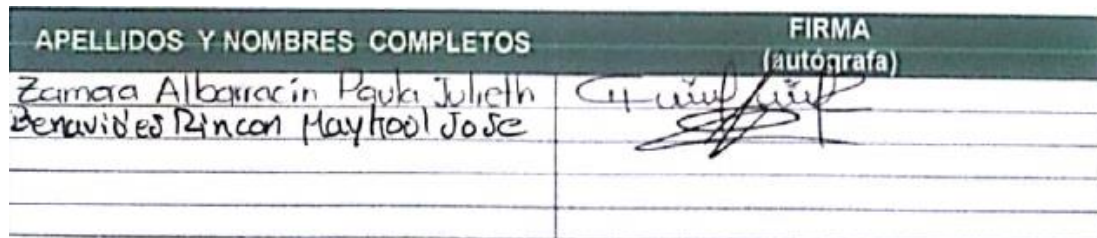 APELLIDOS Y NOMBRES COMPLETOS
FIRMA
(autógrafa)
Zamora Albarracin Paula Julieth
Benavides Rincon Maykool Jose